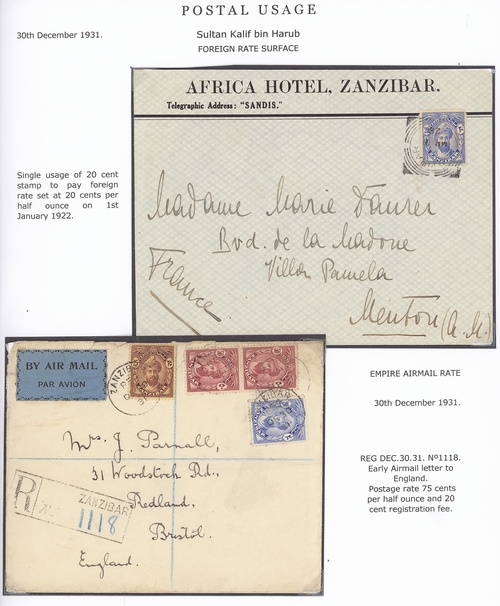 POSTAL USAGE
30th December 1931.
Sultan Kalif bin Harub
FOREIGN RATE SURFACE
AFRICA HOTEL, ZANZIBAR.
Telegraphic Address: "SANDIS."
Single usage of 20 cent
stamp to pay foreign
rate set at 20 cents per
half ounce on 1st
January 1922.
Madame Marie Daurer
Bvd. de la Madone
Villa Pamela
Menton (A.M.)
France
BY AIR MAIL
PAR AVION
ZANZIBAR
Mrs. J. Parnall,
31 Woodstock Rd.,
Redland,
Bristol.
England.
R
ZANZIBAR
No 1118
EMPIRE AIRMAIL RATE
30th December 1931.
REG DEC.30.31. Nº1118.
Early Airmail letter to
England.
Postage rate 75 cents
per half ounce and 20
cent registration fee.